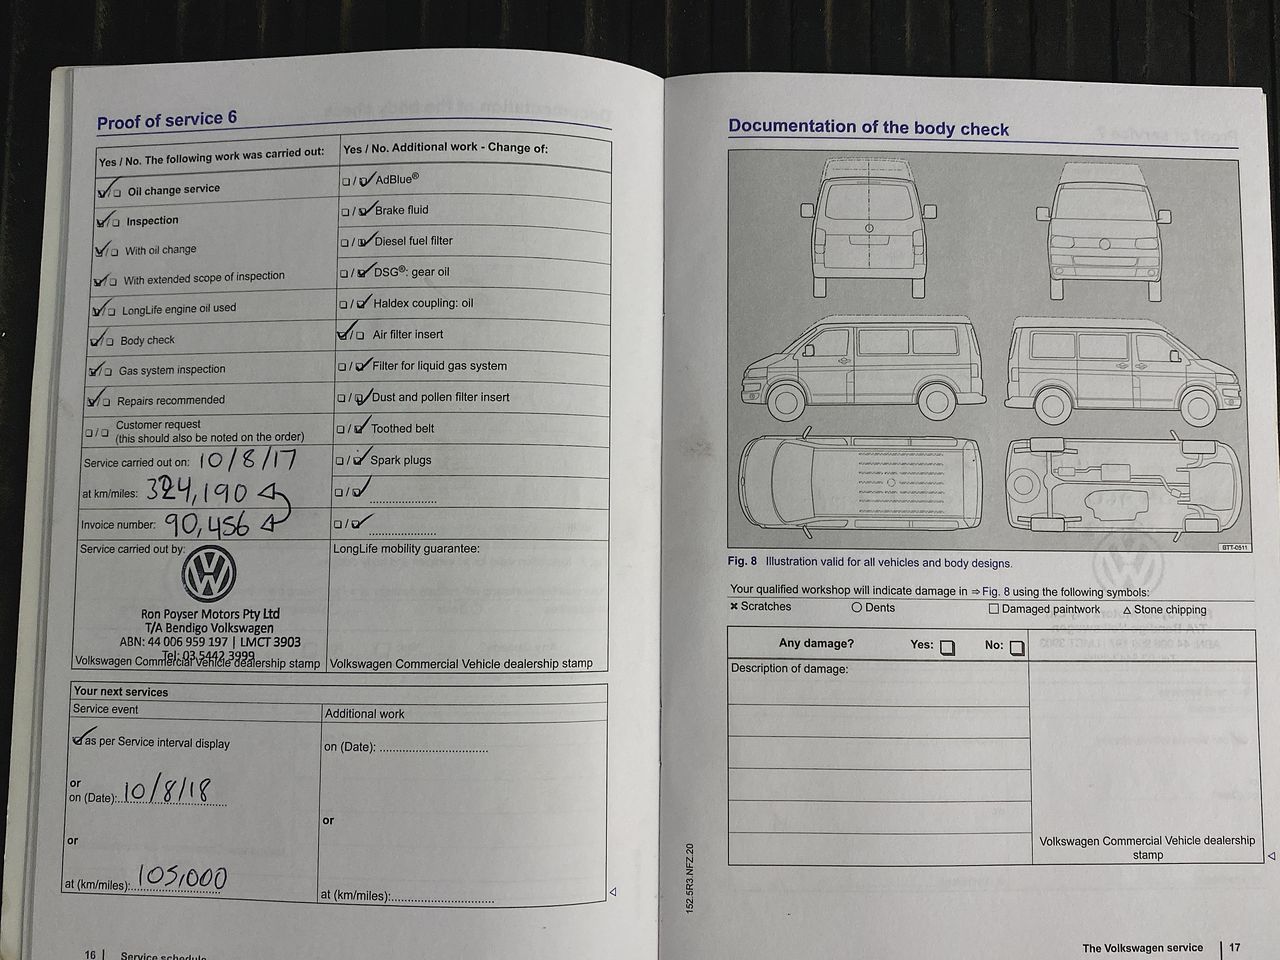 Proof of service 6
Yes / No. The following work was carried out:
Oil change service
Inspection
With oil change
With extended scope of inspection
LongLife engine oil used
Body check
Gas system inspection
Repairs recommended
Customer request
(this should also be noted on the order)
Service carried out on: 10/8/17
at km/miles: 324,190
Invoice number: 90,456
Service carried out by:
Ron Poyser Motors Pty Ltd
T/A Bendigo Volkswagen
ABN: 44 006 959 197 | LMCT 3903
Tel: 03 5442 3999
Volkswagen Commercial Vehicle dealership stamp
Yes / No. Additional work - Change of:
AdBlue®
Brake fluid
Diesel fuel filter
DSG®: gear oil
Haldex coupling: oil
Air filter insert
Filter for liquid gas system
Dust and pollen filter insert
Toothed belt
Spark plugs
LongLife mobility guarantee:
Volkswagen Commercial Vehicle dealership stamp
Your next services
Service event
as per Service interval display
or
on (Date): 10/8/18
or
at (km/miles): 105,000
Additional work
on (Date):
or
at (km/miles):
16 | Service schedule
Documentation of the body check
BTT-0511
Fig. 8 Illustration valid for all vehicles and body designs.
Your qualified workshop will indicate damage in ⇒ Fig. 8 using the following symbols:
× Scratches ○ Dents □ Damaged paintwork △ Stone chipping
Any damage? Yes: No:
Description of damage:
Volkswagen Commercial Vehicle dealership
stamp
152.5R3.NFZ.20
The Volkswagen service | 17